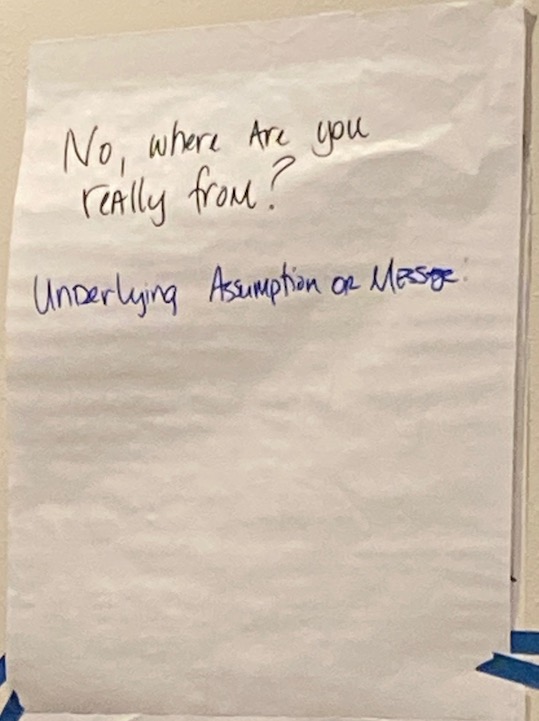 No, where Are you
reAlly from?
UnDerlying Assumption or Messge: